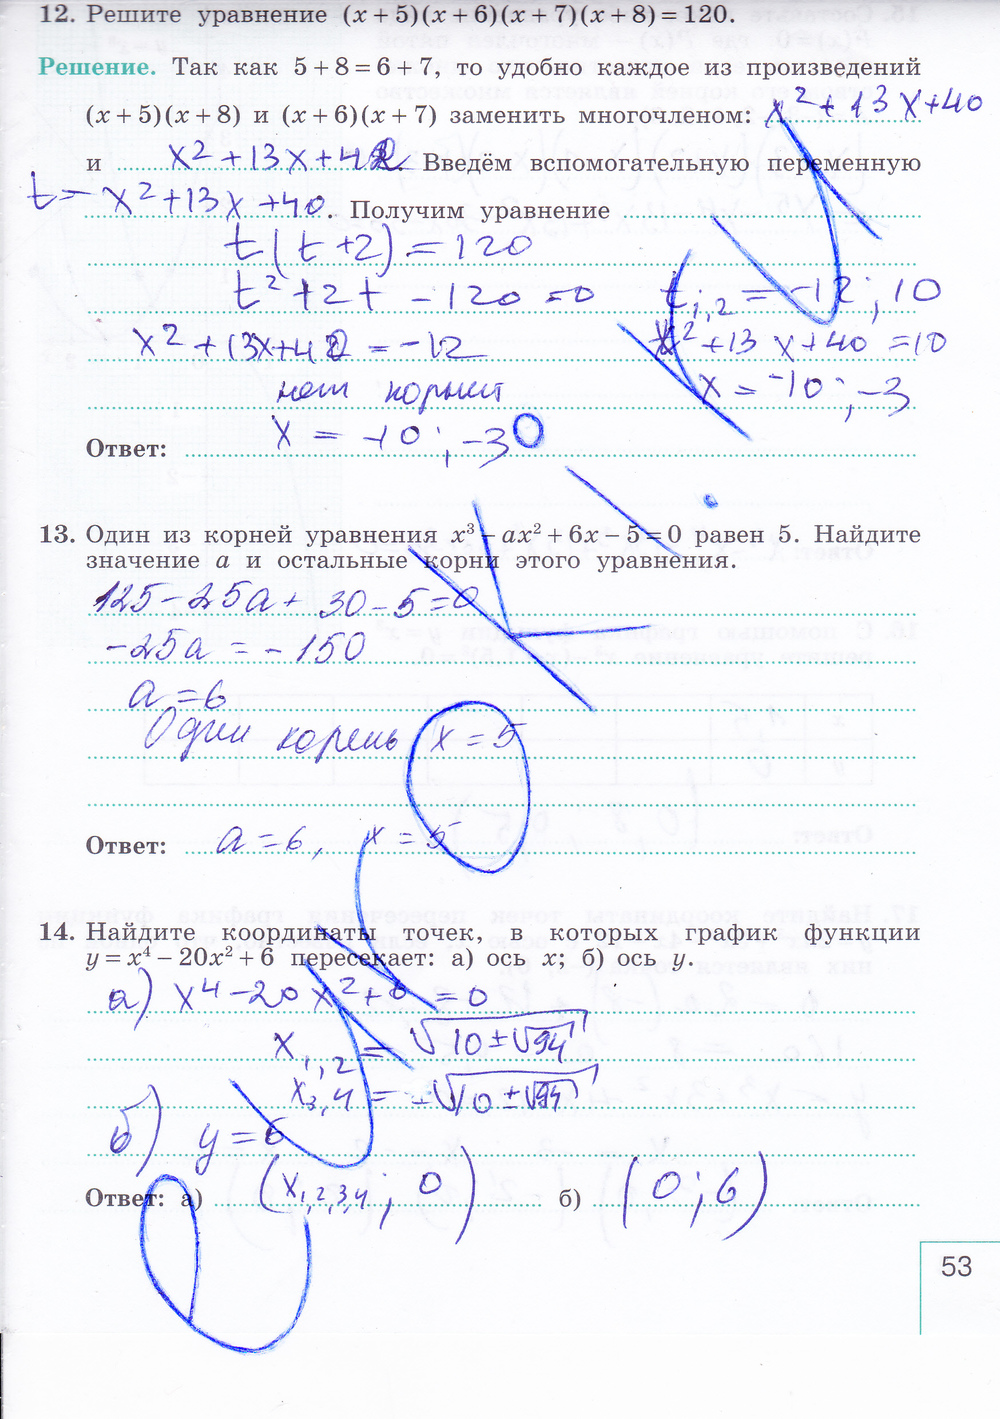 12. Решите уравнение (x + 5)(x + 6)(x + 7)(x + 8) = 120.
Решение. Так как 5 + 8 = 6 + 7, то удобно каждое из произведений
(x + 5)(x + 8) и (x + 6)(x + 7) заменить многочленом: x² + 13x + 40
и x² + 13x + 42. Введём вспомогательную переменную
t = x² + 13x + 40. Получим уравнение
t(t + 2) = 120
t² + 2t - 120 = 0 t₁,₂ = -12; 10
x² + 13x + 42 = -12 x² + 13x + 40 = 10
нет корней x = -10; -3
Ответ: x = -10; -30
13. Один из корней уравнения x³ - ax² + 6x - 5 = 0 равен 5. Найдите
значение a и остальные корни этого уравнения.
125 - 25a + 30 - 5 = 0
-25a = -150
a = 6
Один корень x = 5
Ответ: a = 6, x = 5
14. Найдите координаты точек, в которых график функции
y = x⁴ - 20x² + 6 пересекает: а) ось x; б) ось y.
а) x⁴ - 20x² + 6 = 0
x₁,₂ = √(10 ± √94)
x₃,₄ = -√(10 ± √94)
б) y = 6
Ответ: а) (x₁,₂,₃,₄; 0) б) (0; 6)
53